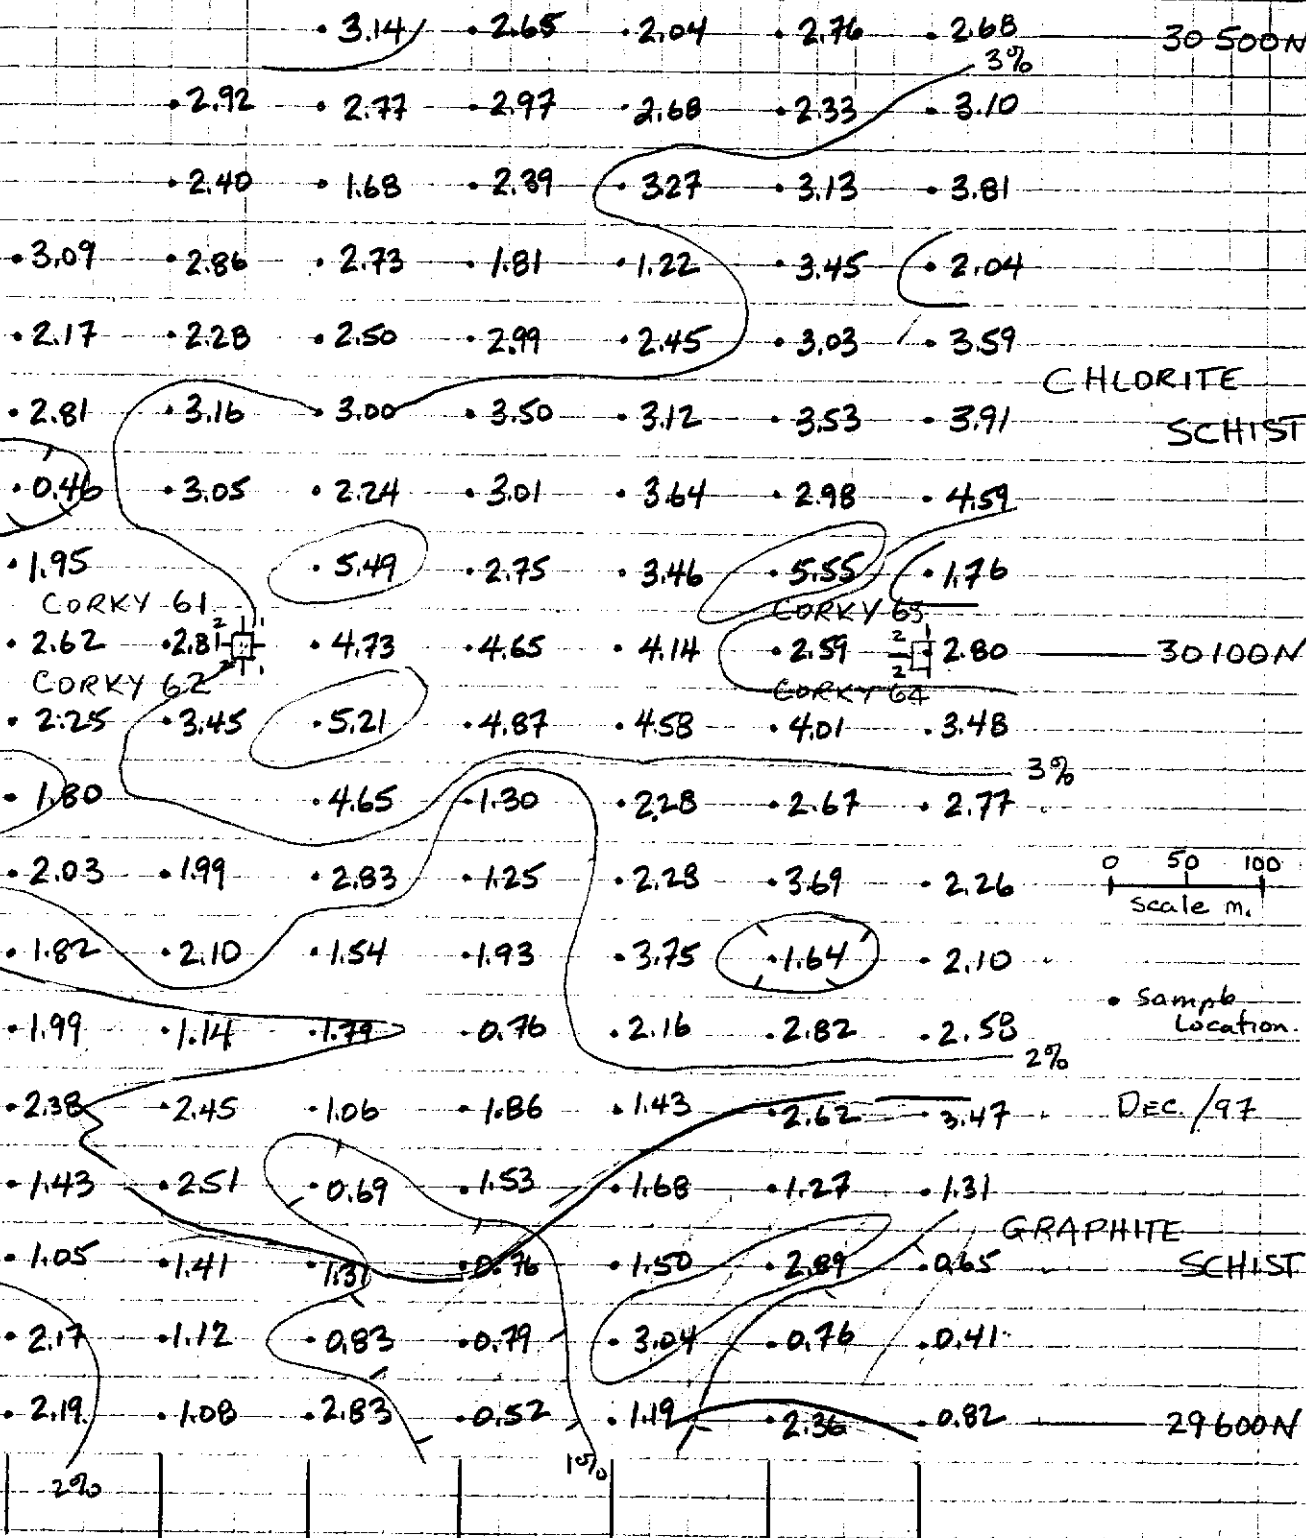 3.14 2.65 2.04 2.76 2.68 30 500N
3%
2.92 2.77 2.97 2.68 2.33 3.10
2.40 1.68 2.39 3.27 3.13 3.81
3.09 2.86 2.73 1.81 1.22 3.45 2.04
2.17 2.28 2.50 2.99 2.45 3.03 3.59
CHLORITE
SCHIST
2.81 3.16 3.00 3.50 3.12 3.53 3.91
0.46 3.05 2.24 3.01 3.64 2.98 4.59
1.95 5.49 2.75 3.46 5.55 1.76
CORKY 61 CORKY 63
2 1 2 1
2.62 2.81 4.73 4.65 4.14 2.59 2.80 30100N
2 1 2
CORKY 62 CORKY 64
2.25 3.45 5.21 4.87 4.58 4.01 3.48
3%
1.80 4.65 1.30 2.28 2.67 2.77
2.03 1.99 2.83 1.25 2.28 3.69 2.26
0 50 100
Scale m.
1.82 2.10 1.54 1.93 3.75 1.64 2.10
Sample
Location.
1.99 1.14 1.79 0.76 2.16 2.82 2.58
2%
2.38 2.45 1.06 1.86 1.43 2.62 3.47
DEC./97
1.43 2.51 0.69 1.53 1.68 1.27 1.31
GRAPHITE
SCHIST
1.05 1.41 1.31 0.76 1.50 2.89 0.65
2.17 1.12 0.83 0.79 3.04 0.76 0.41
2.19 1.08 2.83 0.52 1.19 2.36 0.82 29600N
2% 1%